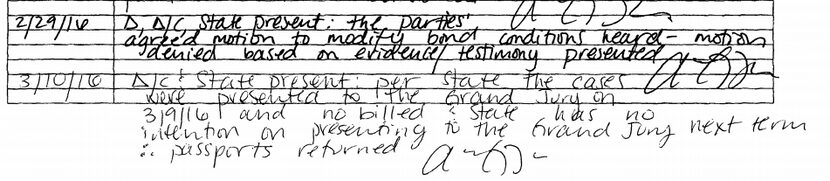 2/29/16 D, D/C State present: the parties'
agree'd motion to modify bond conditions heard - motion
denied based on evidence/testimony presented
3/10/16 D/C & State present: per State the cases
were presented to the Grand Jury on
3/9/16 and no billed & State has no
intention on presenting to the Grand Jury next term
∴ passports returned